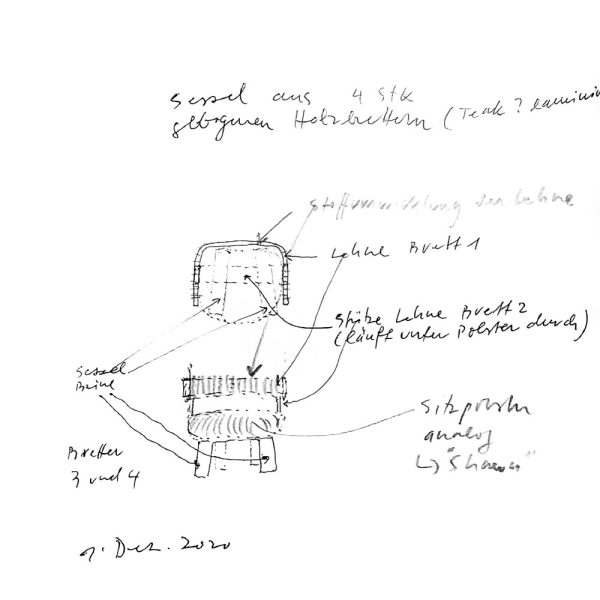 Sessel aus 4 Stk
gebogenen Holzbrettern (Teak?
Lehne
Lehne Brett 1
Stütze Lehne Brett 2
(läuft unter Polster durch)
Sessel
Beine
Sitzpolster
analog
Bretter
3 und 4
1. Dez. 2020